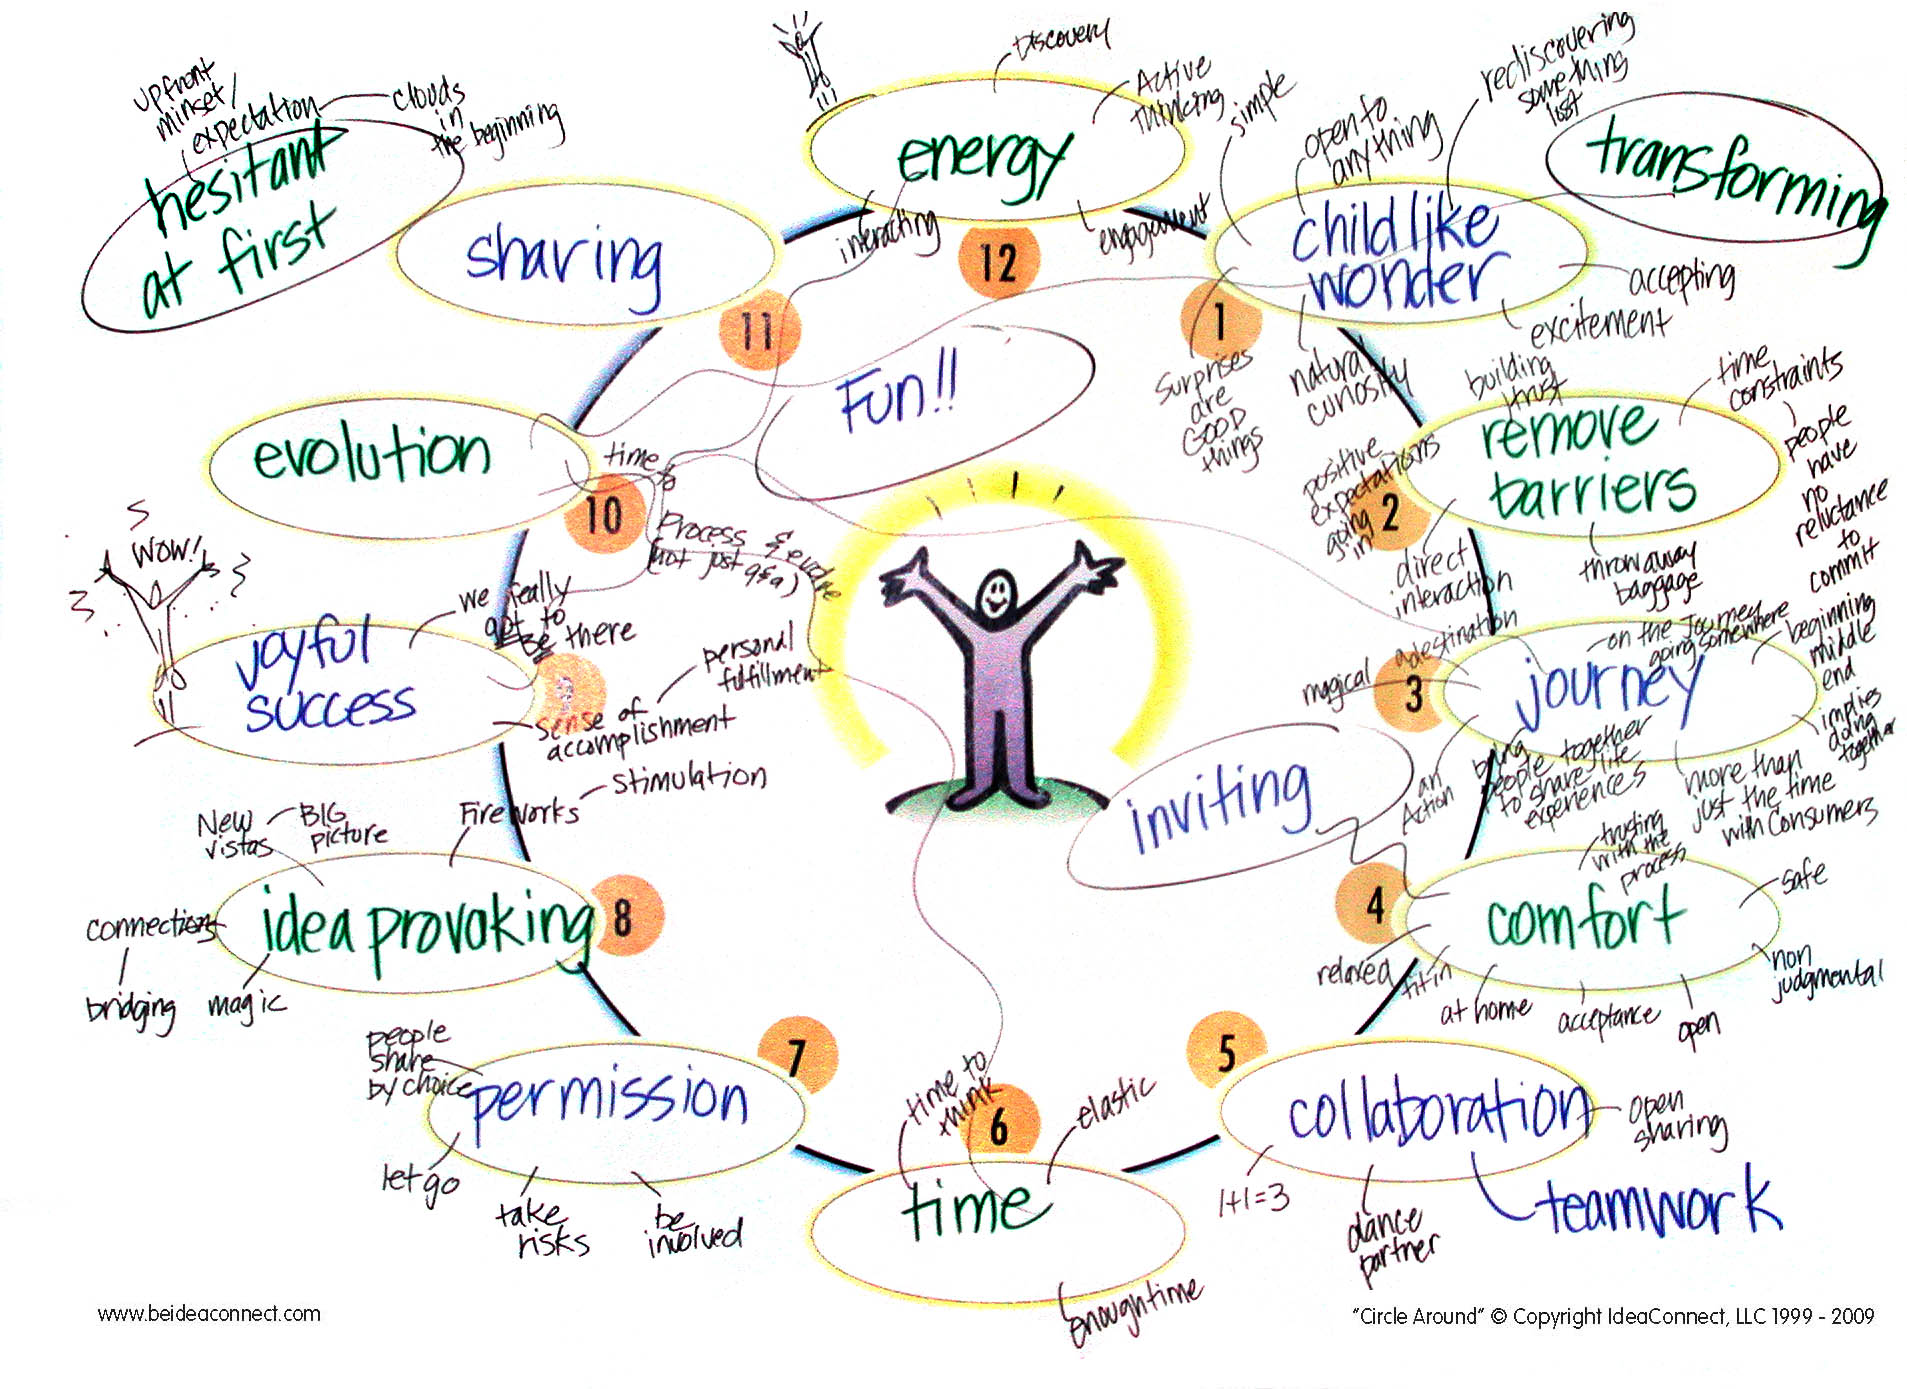 upfront
minset/
expectation
clouds
in
the beginning
hesitant
at first
sharing
11
Discovery
Active
thinking
energy
interacting
engagement
12
simple
open to
anything
rediscovering
something
lost
child like
wonder
1
accepting
excitement
natural
curiosity
Surprises
are
GOOD
things
transforming
Fun!!
building
trust
time
constraints
people
have
no
reluctance
to
commit
remove
barriers
2
positive
expectations
going
in
direct
interaction
throw away
baggage
on the Journey
going somewhere
beginning
middle
end
implies
doing
together
journey
3
a destination
magical
an
Action
bring
people together
to share life
experiences
more than
just the time
with Consumers
inviting
trusting
with the
process
safe
comfort
4
relaxed
fit in
at home
acceptance
open
non
judgmental
5
collaboration
open
sharing
1+1=3
dance
partner
teamwork
time to
think
6
elastic
time
enough time
7
people
share
by choice
permission
let go
take
risks
be
involved
New
vistas
BIG
picture
Fireworks
stimulation
idea provoking
8
connections
bridging
magic
WOW!
joyful
success
we really
got to
Be there
sense of
accomplishment
personal
fulfillment
evolution
10
time
Process
(not just q&a)
www.beideaconnect.com
"Circle Around" © Copyright IdeaConnect, LLC 1999 - 2009